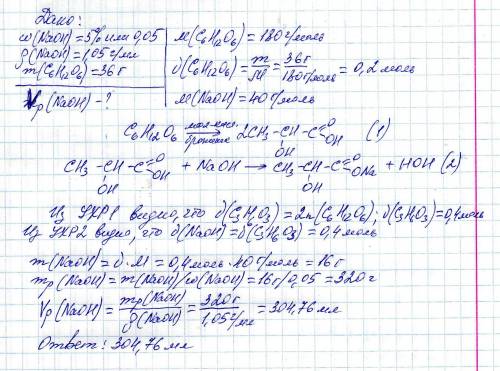 Дано:
ω(NaOH) = 5% или 0,05
ρ(NaOH) = 1,05 г/мл
m(C₆H₁₂O₆) = 36 г
Vр(NaOH) - ?
M(C₆H₁₂O₆) = 180 г/моль
υ(C₆H₁₂O₆) = m/M = 36 г/180 г/моль = 0,2 моль
M(NaOH) = 40 г/моль
C₆H₁₂O₆ мол-кисл. брожение → 2CH₃-CH-C=O OH (1)
OH
CH₃-CH-C=O OH + NaOH → CH₃-CH-C=O ONa + HOH (2)
OH OH
Из УХР1 видно, что υ(C₃H₆O₃) = 2n(C₆H₁₂O₆); υ(C₃H₆O₃) = 0,4 моль
Из УХР2 видно, что υ(NaOH) = υ(C₃H₆O₃) = 0,4 моль
m(NaOH) = υ·M = 0,4 моль · 40 г/моль = 16 г
mр(NaOH) = m(NaOH)/ω(NaOH) = 16 г/0,05 = 320 г
Vр(NaOH) = mр(NaOH)/ρ(NaOH) = 320 г/1,05 г/мл = 304,76 мл
Ответ: 304,76 мл